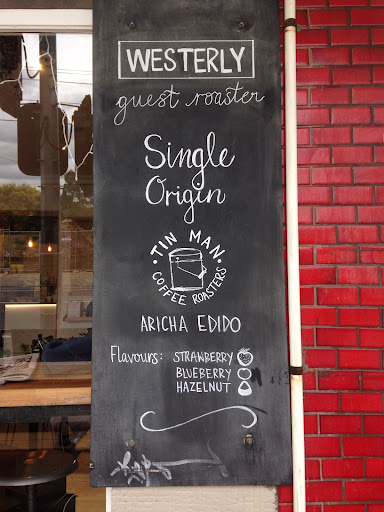 WESTERLY
guest roaster
Single
Origin
TIN MAN
COFFEE ROASTERS
ARICHA EDIDO
Flavours: STRAWBERRY
BLUEBERRY
HAZELNUT